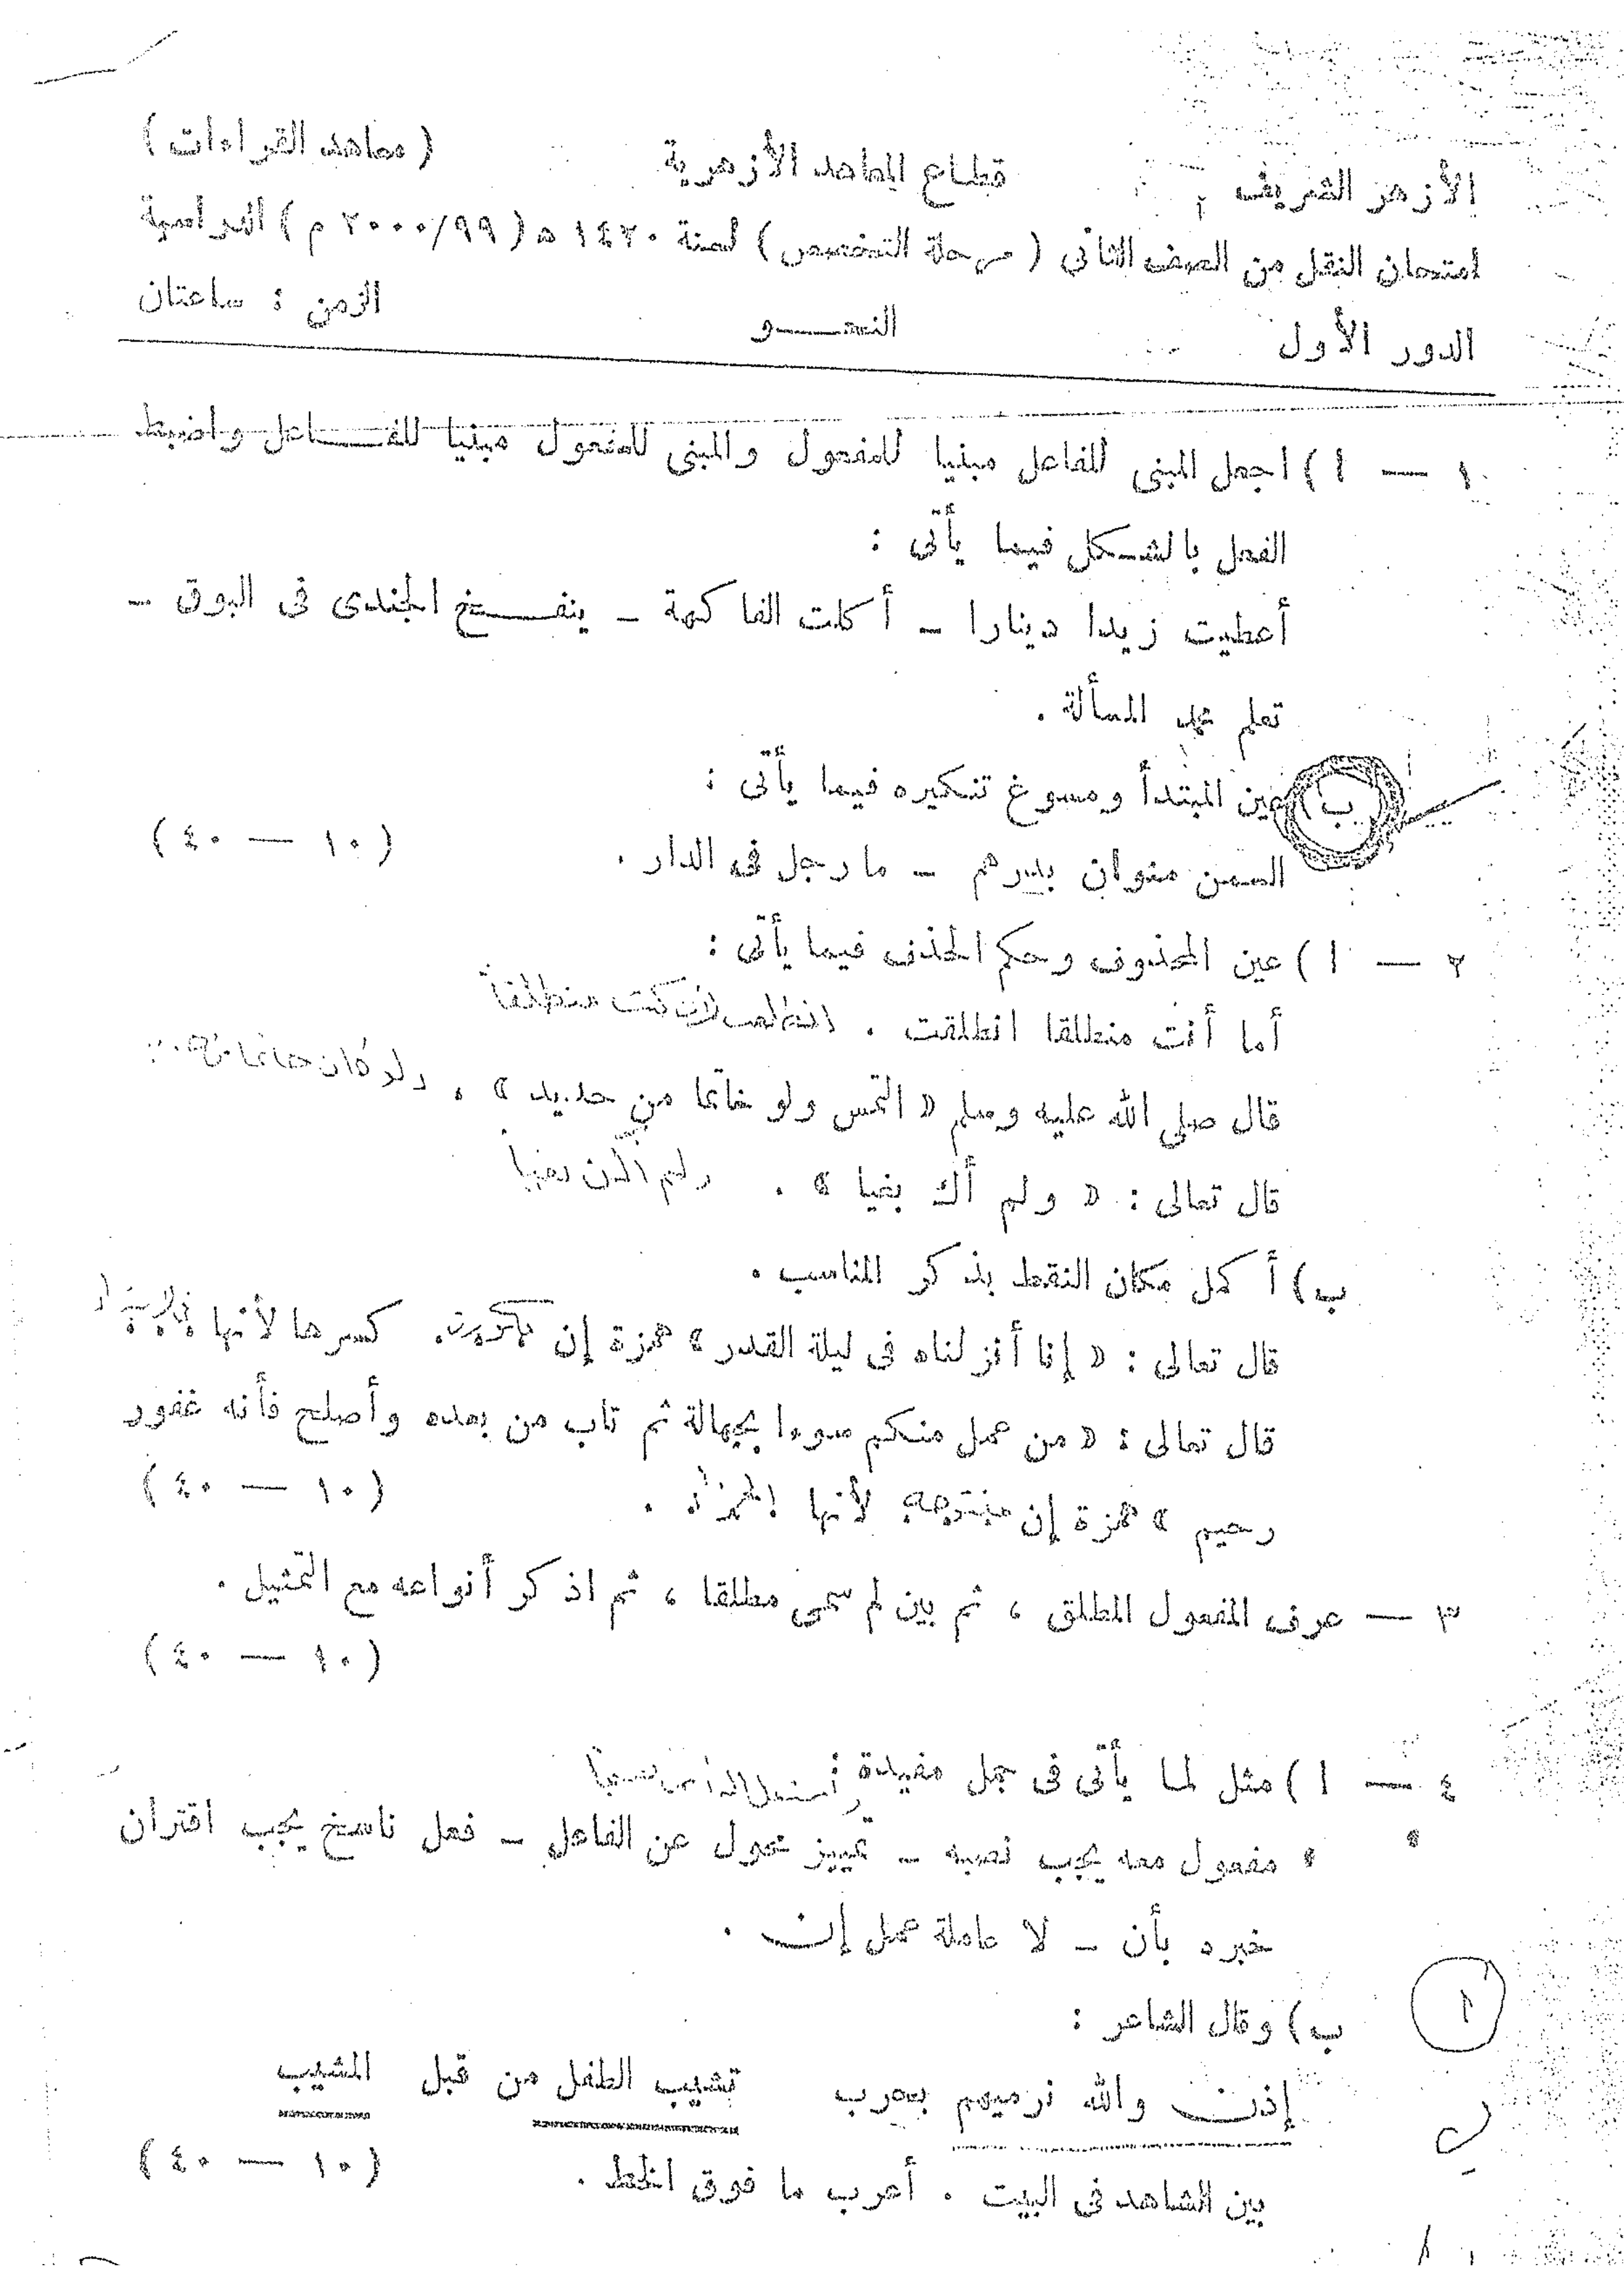 الأزهر الشريف قطاع المعاهد الأزهرية ( معاهد القراءات )
امتحان النقل من الصف الثانى ( مرحلة التخصص ) لسنة ١٤٢٠ ه ( ٢٠٠٠/٩٩ م ) الدراسية
الدور الأول النحـــو الزمن : ساعتان
١ — ا ) اجعل المبنى للفاعل مبنيا للمفعول والمبنى للمفعول مبنيا للفـــاعل واضبط
الفعل بالشكل فيما يأتى :
أعطيت زيدا دينارا – أكلت الفاكهة – ينفـــخ الجندى فى البوق –
تعلم محمد المسألة .
ب ) عين المبتدأ ومسوغ تنكيره فيما يأتى :
السمن منوان بدرهم – ما رجل فى الدار . ( ١٠ — ٤٠ )
٢ — ا ) عين المحذوف وحكم الحذف فيما يأتى :
أما أنت منطلقا انطلقت . انطلقت لأن كنت منطلقاً
قال صلى الله عليه وسلم « التمس ولو خاتما من حديد » . ولو كان خاتما من
قال تعالى : « ولم أك بغيا » . ولم أكن بغيا
ب ) أكمل مكان النقط بذكر المناسب .
قال تعالى : « إنا أنزلناه فى ليلة القدر » همزة إن كسرها لأنها
قال تعالى : « من عمل منكم سوءا بجهالة ثم تاب من بعده وأصلح فأنه غفور
رحيم » همزة إن لأنها . ( ١٠ — ٤٠ )
٣ — عرف المفعول المطلق ، ثم بين لم سمى مطلقا ، ثم اذكر أنواعه مع التمثيل .
( ١٠ — ٤٠ )
٤ — ا ) مثل لما يأتى فى جمل مفيدة :
مفعول معه يجب نصبه – تمييز محول عن الفاعل – فعل ناسخ يجب اقتران
خبره بأن – لا عاملة عمل إن .
ب ) وقال الشاعر :
إذن والله نرميهم بحرب تشيب الطفل من قبل المشيب
بين الشاهد فى البيت . أعرب ما فوق الخط . ( ١٠ — ٤٠ )